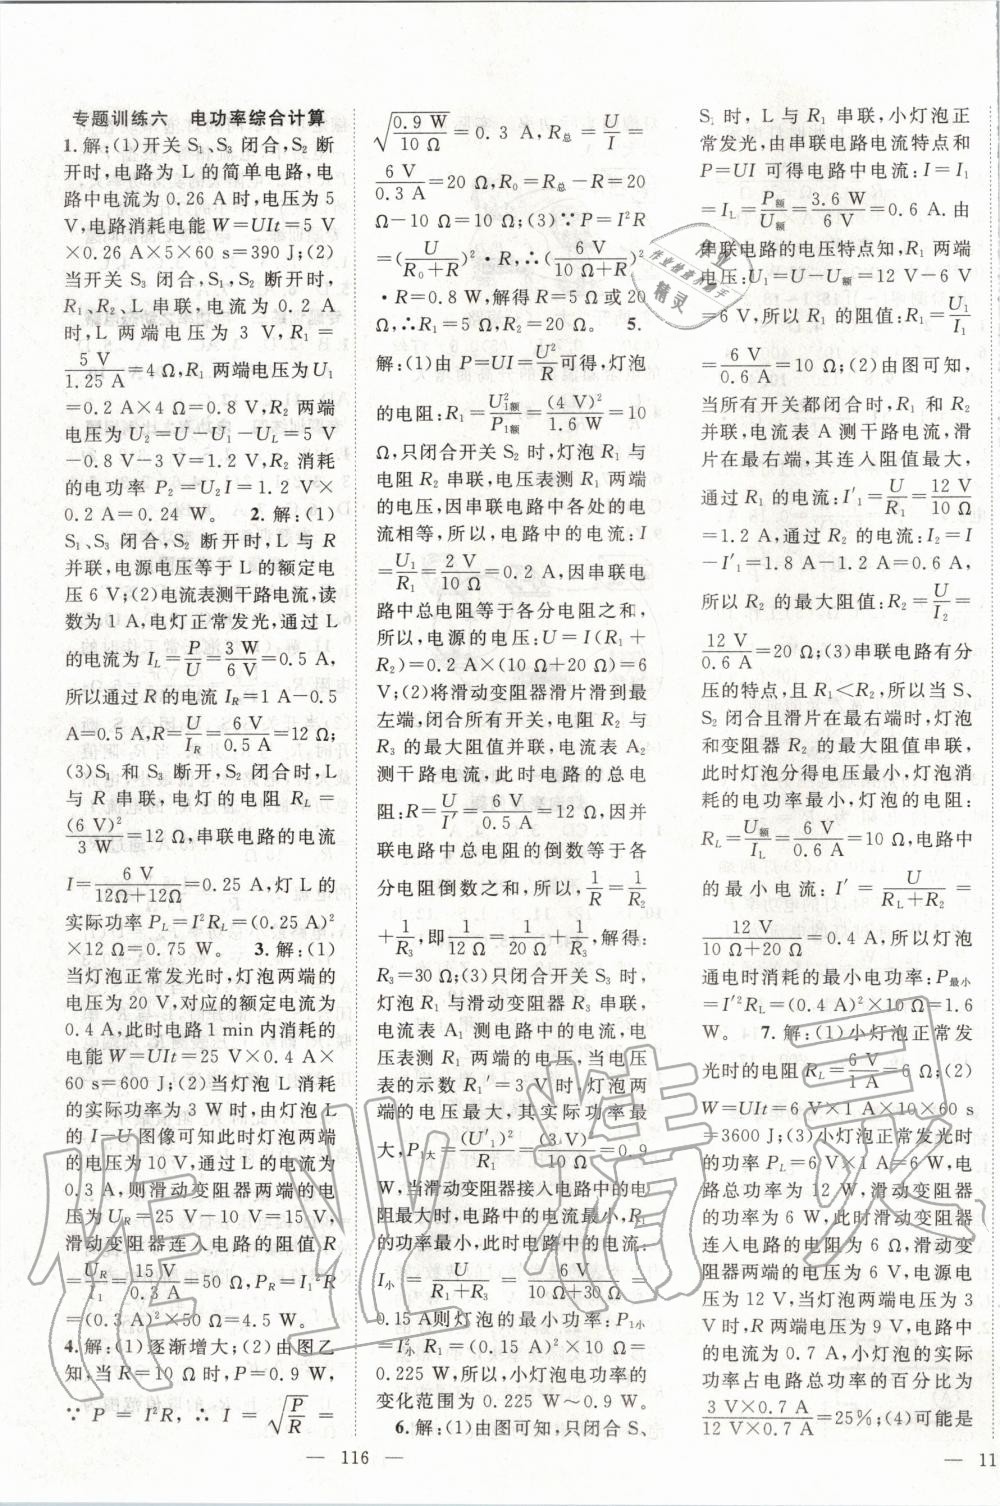 专题训练六　电功率综合计算
1.解:(1)开关 S₁、S₃ 闭合,S₂ 断
开时,电路为 L 的简单电路,电
路中电流为 0.26 A 时,电压为 5
V,电路消耗电能 W=UIt=5 V
×0.26 A×5×60 s=390 J;(2)
当开关 S₃ 闭合,S₁、S₂ 断开时,
R₁、R₂、L 串联,电流为 0.2 A
时,L 两端电压为 3 V,R₁=
5 V/1.25 A=4 Ω,R₁ 两端电压为 U₁
=0.2 A×4 Ω=0.8 V,R₂ 两端
电压为 U₂=U-U₁-U_L=5 V
-0.8 V-3 V=1.2 V,R₂ 消耗
的电功率 P₂=U₂I=1.2 V×
0.2 A=0.24 W。　2.解:(1)
S₁、S₃ 闭合,S₂ 断开时,L 与 R
并联,电源电压等于 L 的额定电
压 6 V;(2)电流表测干路电流,读
数为 1 A,电灯正常发光,通过 L
的电流为 I_L=P/U=3 W/6 V=0.5 A,
所以通过 R 的电流 I_R=1 A-0.5
A=0.5 A,R=U/I_R=6 V/0.5 A=12 Ω;
(3)S₁ 和 S₃ 断开,S₂ 闭合时,L
与 R 串联,电灯的电阻 R_L=
(6 V)²/3 W=12 Ω,串联电路的电流
I=6 V/(12Ω+12Ω)=0.25 A,灯 L 的
实际功率 P_L=I²R_L=(0.25 A)²
×12 Ω=0.75 W。　3.解:(1)
当灯泡正常发光时,灯泡两端的
电压为 20 V,对应的额定电流为
0.4 A,此时电路 1 min 内消耗的
电能 W=UIt=25 V×0.4 A×
60 s=600 J;(2)当灯泡 L 消耗
的实际功率为 3 W 时,由灯泡 L
的 I-U 图像可知此时灯泡两端
电压为 10 V,通过 L 的电流为
0.3 A,则滑动变阻器两端的电
压为 U_R=25 V-10 V=15 V,
滑动变阻器连入电路的阻值 R
=U_R/I₁=15 V/0.3 A=50 Ω,P_R=I₁²R
=(0.3 A)²×50 Ω=4.5 W。
4.解:(1)逐渐增大;(2)由图乙
知,当 R=10 Ω 时,P=0.9 W,
∵ P = I²R, ∴ I = √(P/R) =
√(0.9 W/10 Ω) = 0.3 A,R总=U/I=
6 V/0.3 A=20 Ω,R₀=R总-R=20
Ω-10 Ω=10 Ω;(3)∵P=I²R
=(U/(R₀+R))²·R,∴(6 V/(10 Ω+R))²
·R=0.8 W,解得 R=5 Ω 或 20
Ω,∴R₁=5 Ω,R₂=20 Ω。　5.
解:(1)由 P=UI=U²/R可得,灯泡
的电阻:R₁=U²₁额/P₁额=(4 V)²/1.6 W=10
Ω,只闭合开关 S₂ 时,灯泡 R₁ 与
电阻 R₂ 串联,电压表测 R₁ 两端
的电压,因串联电路中各处的电
流相等,所以,电路中的电流:I
=U₁/R₁=2 V/10 Ω=0.2 A,因串联电
路中总电阻等于各分电阻之和,
所以,电源的电压:U=I(R₁+
R₂)=0.2 A×(10 Ω+20 Ω)=6
V;(2)将滑动变阻器滑片滑到最
左端,闭合所有开关,电阻 R₂ 与
R₃ 的最大阻值并联,电流表 A₂
测干路电流,此时电路的总电
阻:R=U/I′=6 V/0.5 A=12 Ω,因并
联电路中总电阻的倒数等于各
分电阻倒数之和,所以,1/R=1/R₂
+1/R₃,即1/12 Ω=1/20 Ω+1/R₃,解得:
R₃=30 Ω;(3)只闭合开关 S₃ 时,
灯泡 R₁ 与滑动变阻器 R₃ 串联,
电流表 A₁ 测电路中的电流,电
压表测 R₁ 两端的电压,当电压
表的示数 R₁′=3 V 时,灯泡两
端的电压最大,其实际功率最
大,P₁大=(U′₁)²/R₁=(3 V)²/10 Ω=0.9
W,当滑动变阻器接入电路中的电
阻最大时,电路中的电流最小,R₁
的功率最小,此时电路中的电流:
I小=U/(R₁+R₃)=6 V/(10 Ω+30 Ω)=
0.15 A则灯泡的功率:P₁小
=I²小 R₁=(0.15 A)²×10 Ω=
0.225 W,所以,小灯泡电功率的
变化范围为 0.225 W～0.9 W。
6.解:(1)由图可知,只闭合 S、
S₁ 时,L 与 R₁ 串联,小灯泡正
常发光,由串联电路电流特点和
P=UI 可得电路中电流:I=I₁
=I_L=P额/U额=3.6 W/6 V=0.6 A.由
串联电路的电压特点知,R₁ 两端
电压:U₁=U-U额=12 V-6 V
=6 V,所以,R₁ 的阻值:R₁=U₁/I₁
=6 V/0.6 A=10 Ω;(2)由图可知,
当所有开关都闭合时,R₁ 和 R₂
并联,电流表 A 测干路电流,滑
片在最右端,其连入阻值最大,
通过 R₁ 的电流:I′₁=U/R₁=12 V/10 Ω
=1.2 A,通过 R₂ 的电流:I₂=I
-I′₁=1.8 A-1.2 A=0.6 A,
所以 R₂ 的最大阻值:R₂=U/I₂=
12 V/0.6 A=20 Ω;(3)串联电路有分
压的特点,且 R₁<R₂,所以当 S、
S₂ 闭合且滑片在最右端时,灯泡
和变阻器 R₂ 的最大阻值串联,
此时灯泡分得电压最小,灯泡消
耗的电功率最小,灯泡的电阻:
R_L=U额/I_L=6 V/0.6 A=10 Ω,电路中
的最小电流:I′=U/(R_L+R₂)=
12 V/(10 Ω+20 Ω)=0.4 A,所以灯泡
通电时消耗的最小电功率:P最小
=I′²R_L=(0.4 A)²×10 Ω=1.6
W。　7.解:(1)小灯泡正常发
光时的电阻 R_L=6 V/1 A=6 Ω;(2)
W=UIt=6 V×1 A×10×60 s
=3600 J;(3)小灯泡正常发光时
的功率 P_L=6 V×1 A=6 W,电
路总功率为 12 W,滑动变阻器
功率为 6 W,此时滑动变阻器
连入电路的电阻为 6 Ω,滑动变
阻器两端的电压为 6 V,电源电
压为 12 V,当灯泡两端电压为 3
V 时,R 两端电压为 9 V,电路中
的电流为 0.7 A,小灯泡的实际
功率占电路总功率的百分比为
3 V×0.7 A/12 V×0.7 A=25%;(4)可能是
— 116 —
— 11
作业精灵
精灵